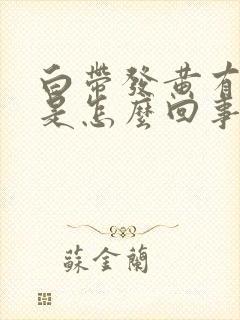 白帶發黄有
是怎麼回事
蘇金蘭